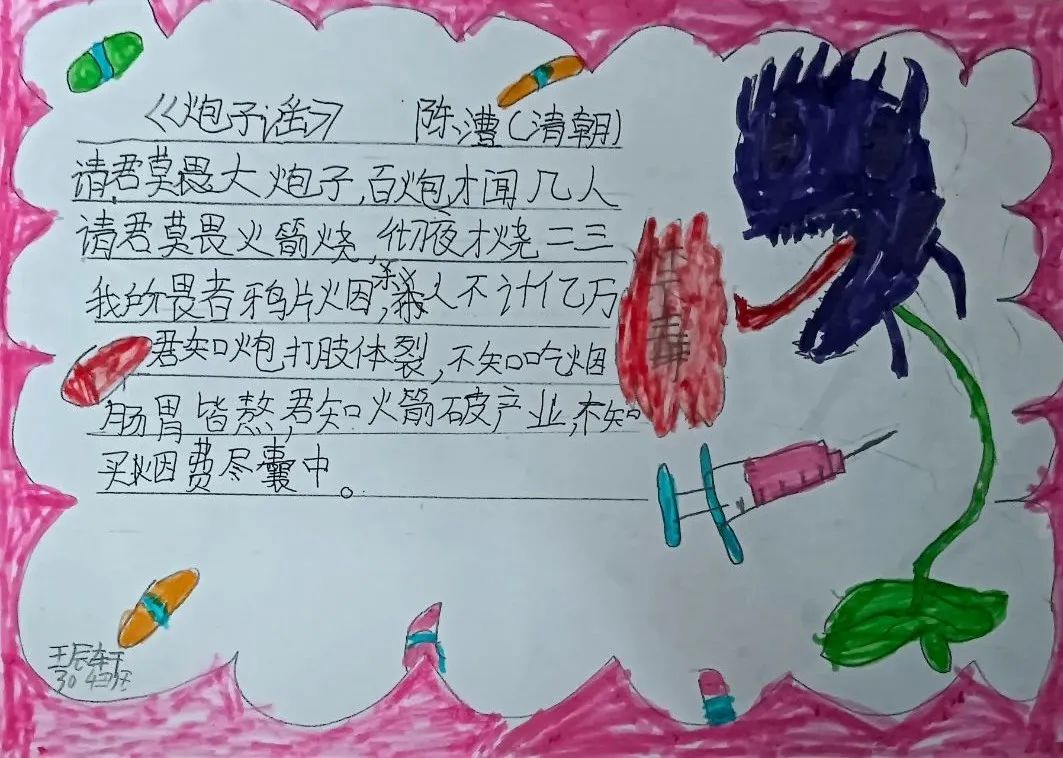 《炮子谣》 陈澧(清朝)
请君莫畏大炮子,百炮才闻几人
请君莫畏火箭烧,彻夜才烧二三
我所畏者鸦片烟,杀人不计亿万
君知炮打肢体裂,不知吃烟
肠胃皆熬,君知火箭破产业,不知
买烟费尽囊中。
禁毒
王辰轩